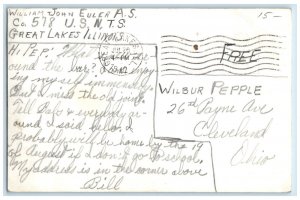 WILLIAM JOHN EULER A.S.
CO. 578 U.S.N.T.S.
GREAT LAKES ILLINOIS
15-
HI "PEP"
ound the bar?
ing myself immensely
But I miss the old joint.
Tell Babe & everybody ar-
ound I said hello. I
probably will be home by the 19
of August if I don't go to school.
My address is in the corner above
Bill
FREE
WILBUR PEPPLE
26th Payne Ave
Cleveland
Ohio